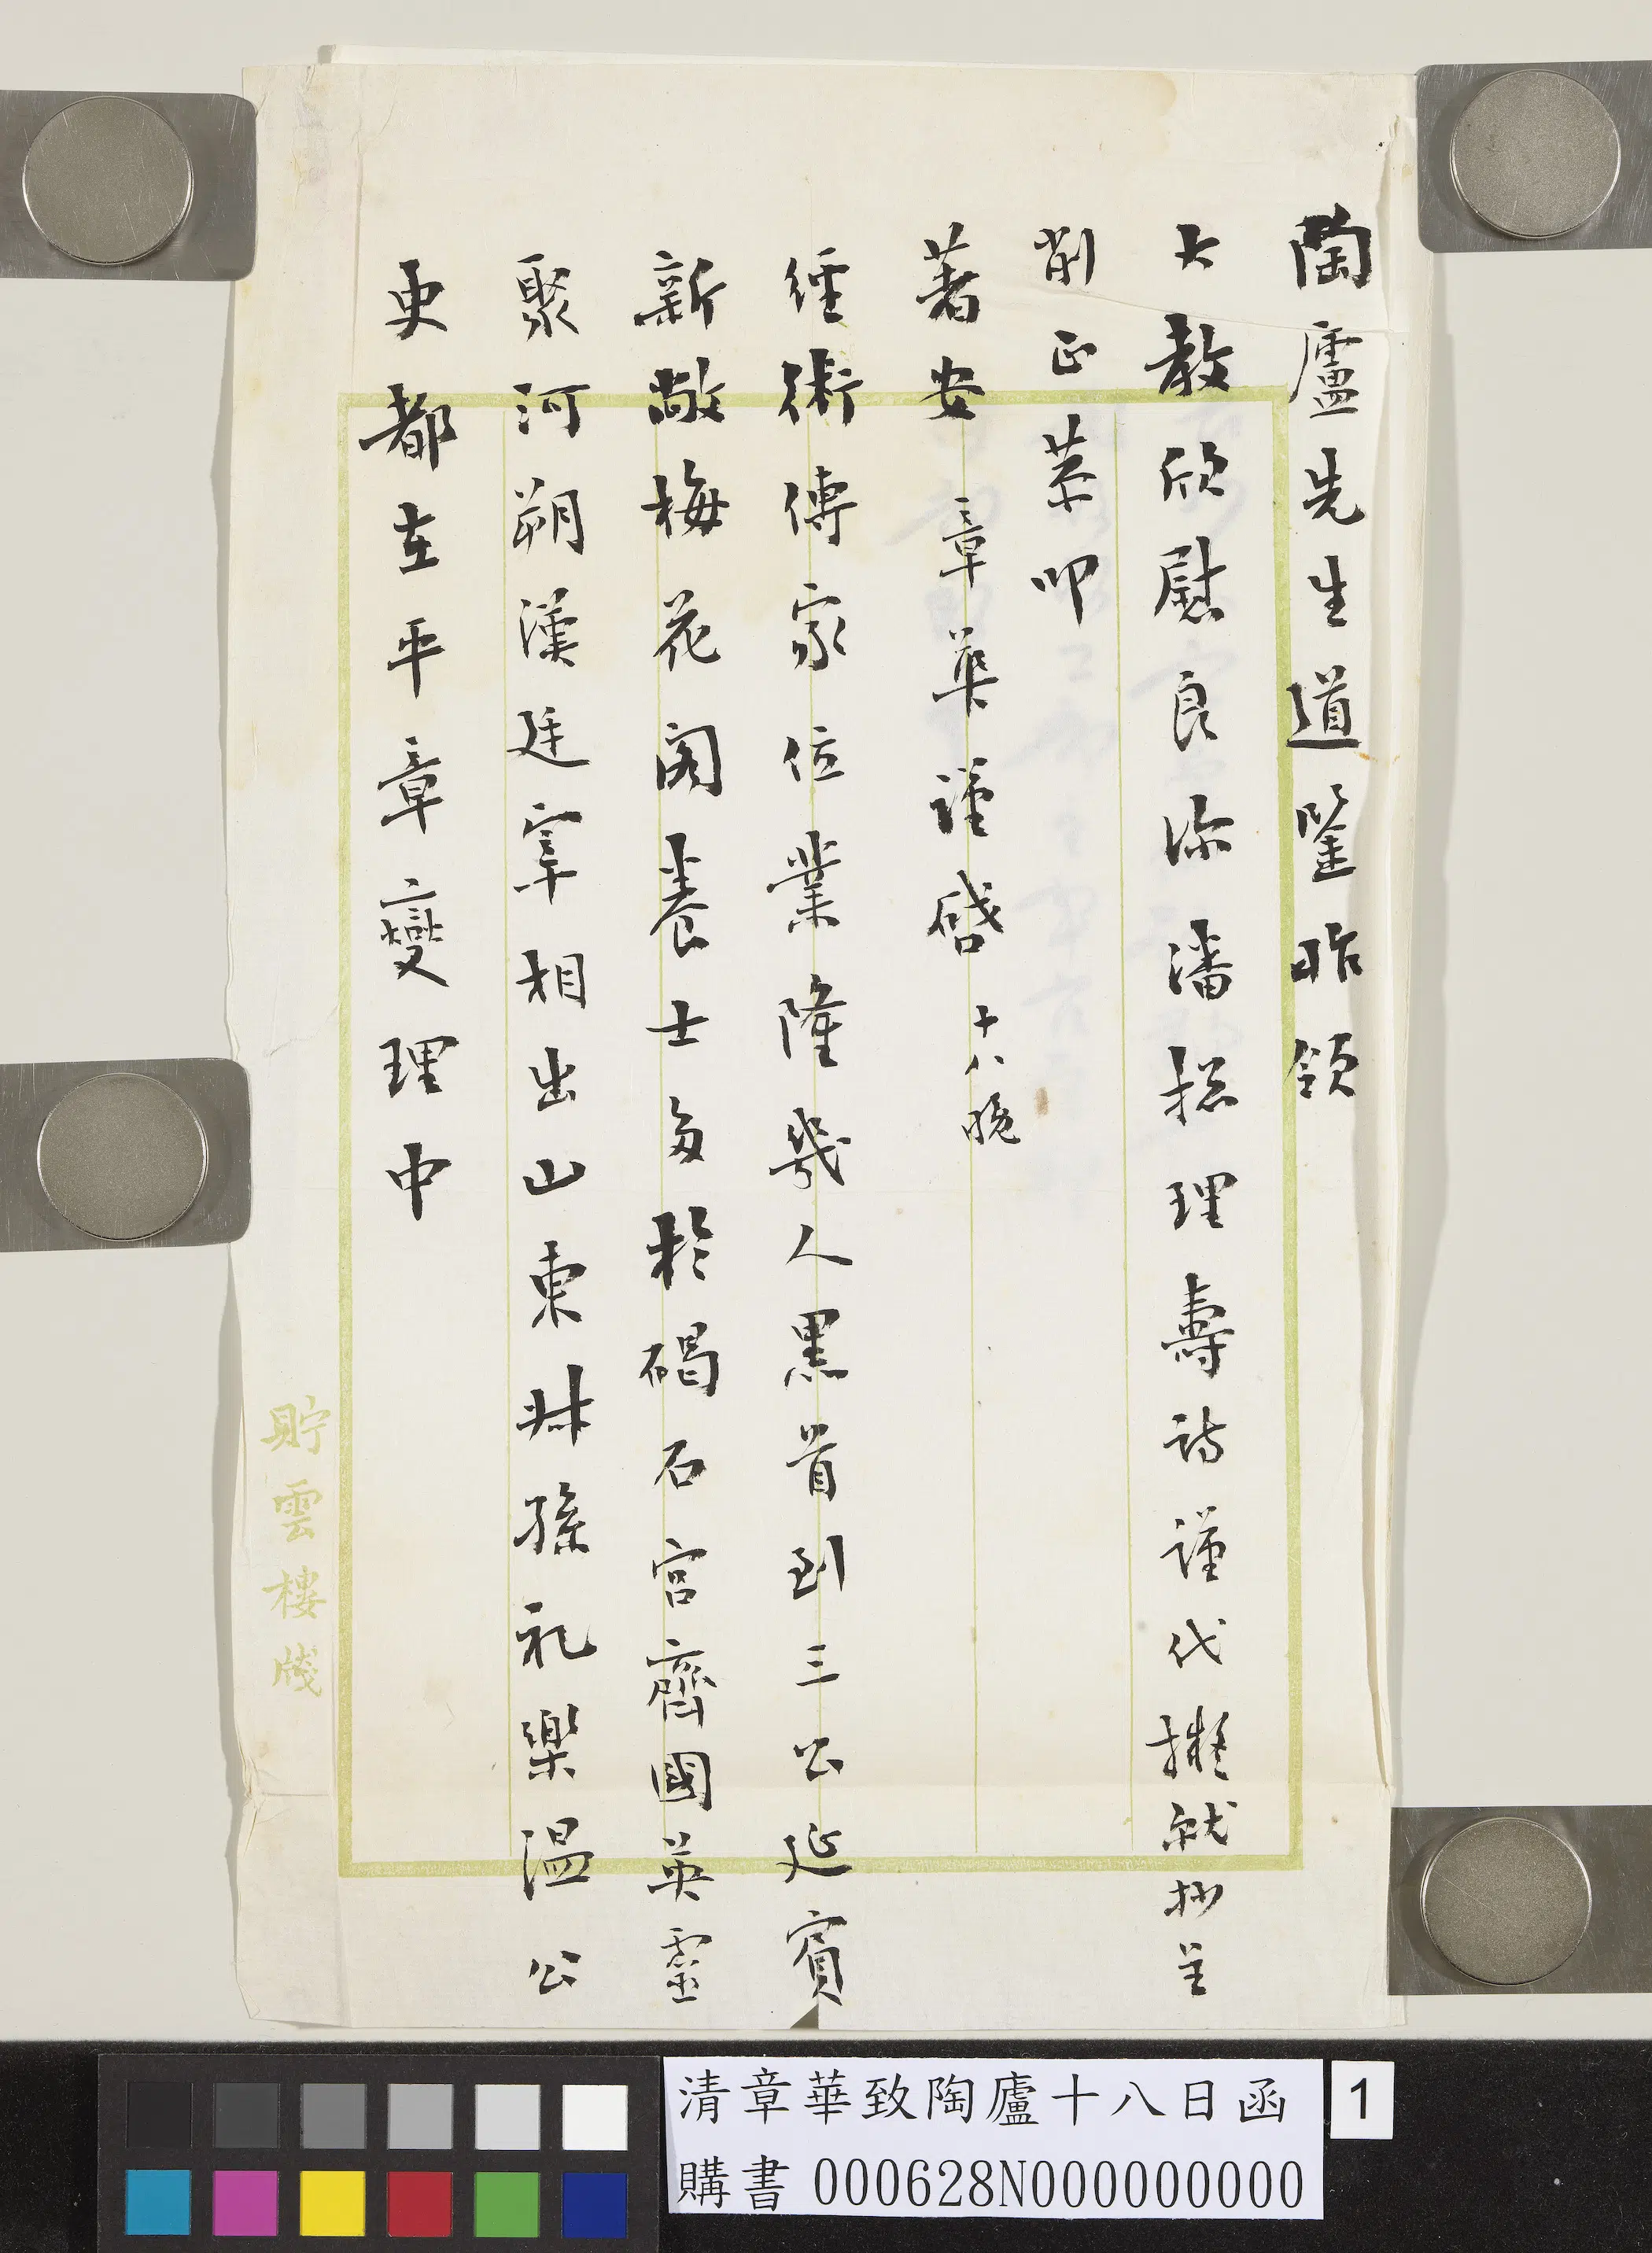 陶廬先生道鑒昨領
大教欣慰良深潘總理壽詩謹代擬就抄呈
削正恭叩
著安 章華謹啓 十八晚
經術傳家位業隆幾人黑首到三公延賓
新敞梅花閣養士多於碣石宮齊國英靈
聚河朔漢廷宰相出山東叔孫礼樂溫公
更都在平章變理中
貯雲樓牋
清章華致陶廬十八日函
購書 000628N000000000
1